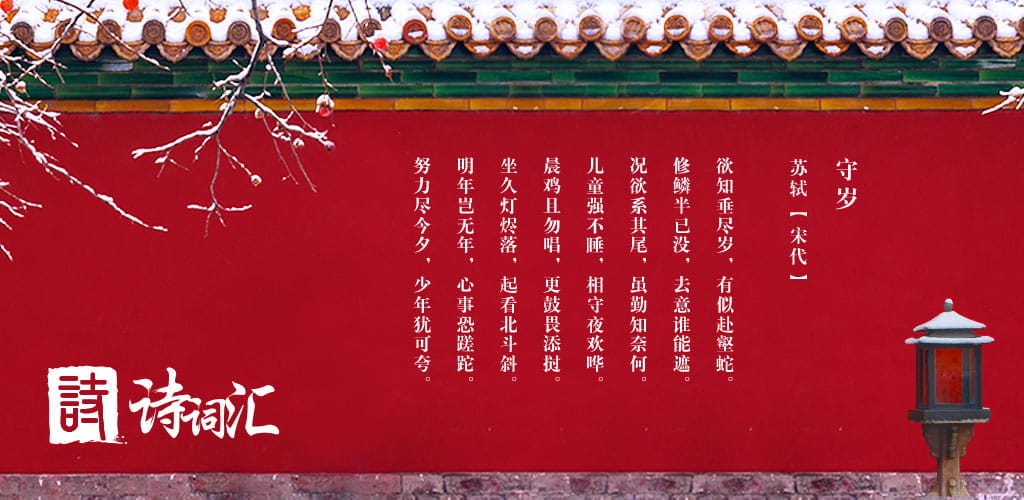 守岁
苏轼【宋代】
欲知垂尽岁，有似赴壑蛇。
修鳞半已没，去意谁能遮。
况欲系其尾，虽勤知奈何。
儿童强不睡，相守夜欢哗。
晨鸡且勿唱，更鼓畏添挝。
坐久灯烬落，起看北斗斜。
明年岂无年，心事恐蹉跎。
努力尽今夕，少年犹可夸。
詩
诗词汇